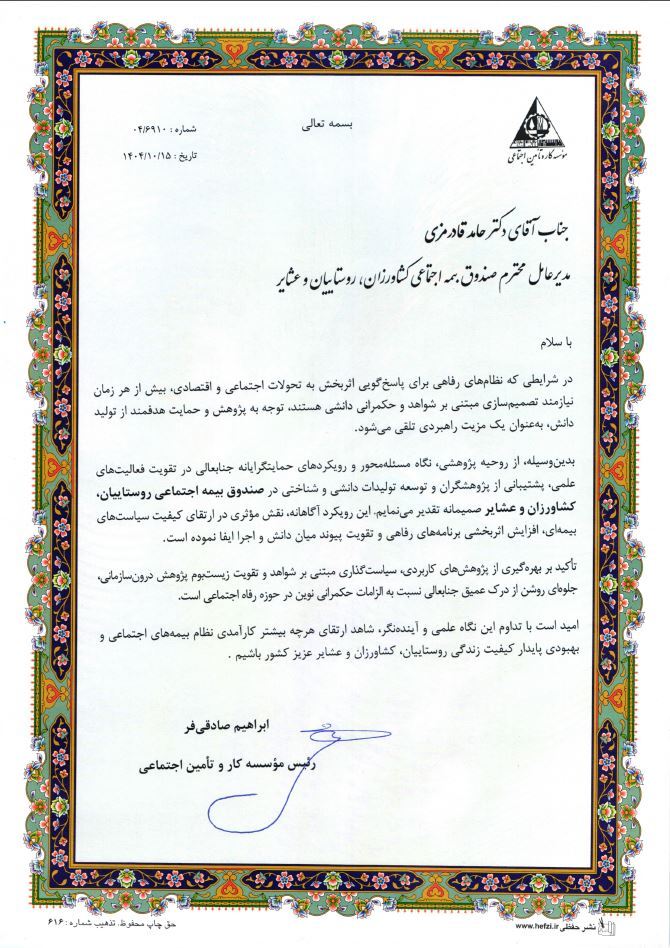 بسمه تعالی
شماره : ۰۴/۶۹۱۰
تاریخ : ۱۴۰۴/۱۰/۱۵
مؤسسه کار و تأمین اجتماعی
جناب آقای دکتر حامد قادرمزی
مدیرعامل محترم صندوق بیمه اجتماعی کشاورزان، روستاییان و عشایر
با سلام
در شرایطی که نظام‌های رفاهی برای پاسخ‌گویی اثربخش به تحولات اجتماعی و اقتصادی، بیش از هر زمان
نیازمند تصمیم‌سازی مبتنی بر شواهد و حکمرانی دانشی هستند، توجه به پژوهش و حمایت هدفمند از تولید
دانش، به‌عنوان یک مزیت راهبردی تلقی می‌شود.
بدین‌وسیله، از روحیه پژوهشی، نگاه مسئله‌محور و رویکردهای حمایتگرایانه جنابعالی در تقویت فعالیت‌های
علمی، پشتیبانی از پژوهشگران و توسعه تولیدات دانشی و شناختی در صندوق بیمه اجتماعی روستاییان،
کشاورزان و عشایر صمیمانه تقدیر می‌نمایم. این رویکرد آگاهانه، نقش مؤثری در ارتقای کیفیت سیاست‌های
بیمه‌ای، افزایش اثربخشی برنامه‌های رفاهی و تقویت پیوند میان دانش و اجرا ایفا نموده است.
تأکید بر بهره‌گیری از پژوهش‌های کاربردی، سیاست‌گذاری مبتنی بر شواهد و تقویت زیست‌بوم پژوهش درون‌سازمانی،
جلوه‌ای روشن از درک عمیق جنابعالی نسبت به الزامات حکمرانی نوین در حوزه رفاه اجتماعی است.
امید است با تداوم این نگاه علمی و آینده‌نگر، شاهد ارتقای هرچه بیشتر کارآمدی نظام بیمه‌های اجتماعی و
بهبودی پایدار کیفیت زندگی روستاییان، کشاورزان و عشایر عزیز کشور باشیم .
ابراهیم صادقی‌فر
رئیس مؤسسه کار و تأمین اجتماعی
نشر حفظی www.hefzi.ir
حق چاپ محفوظ، تذهیب شماره : ۶۱۶